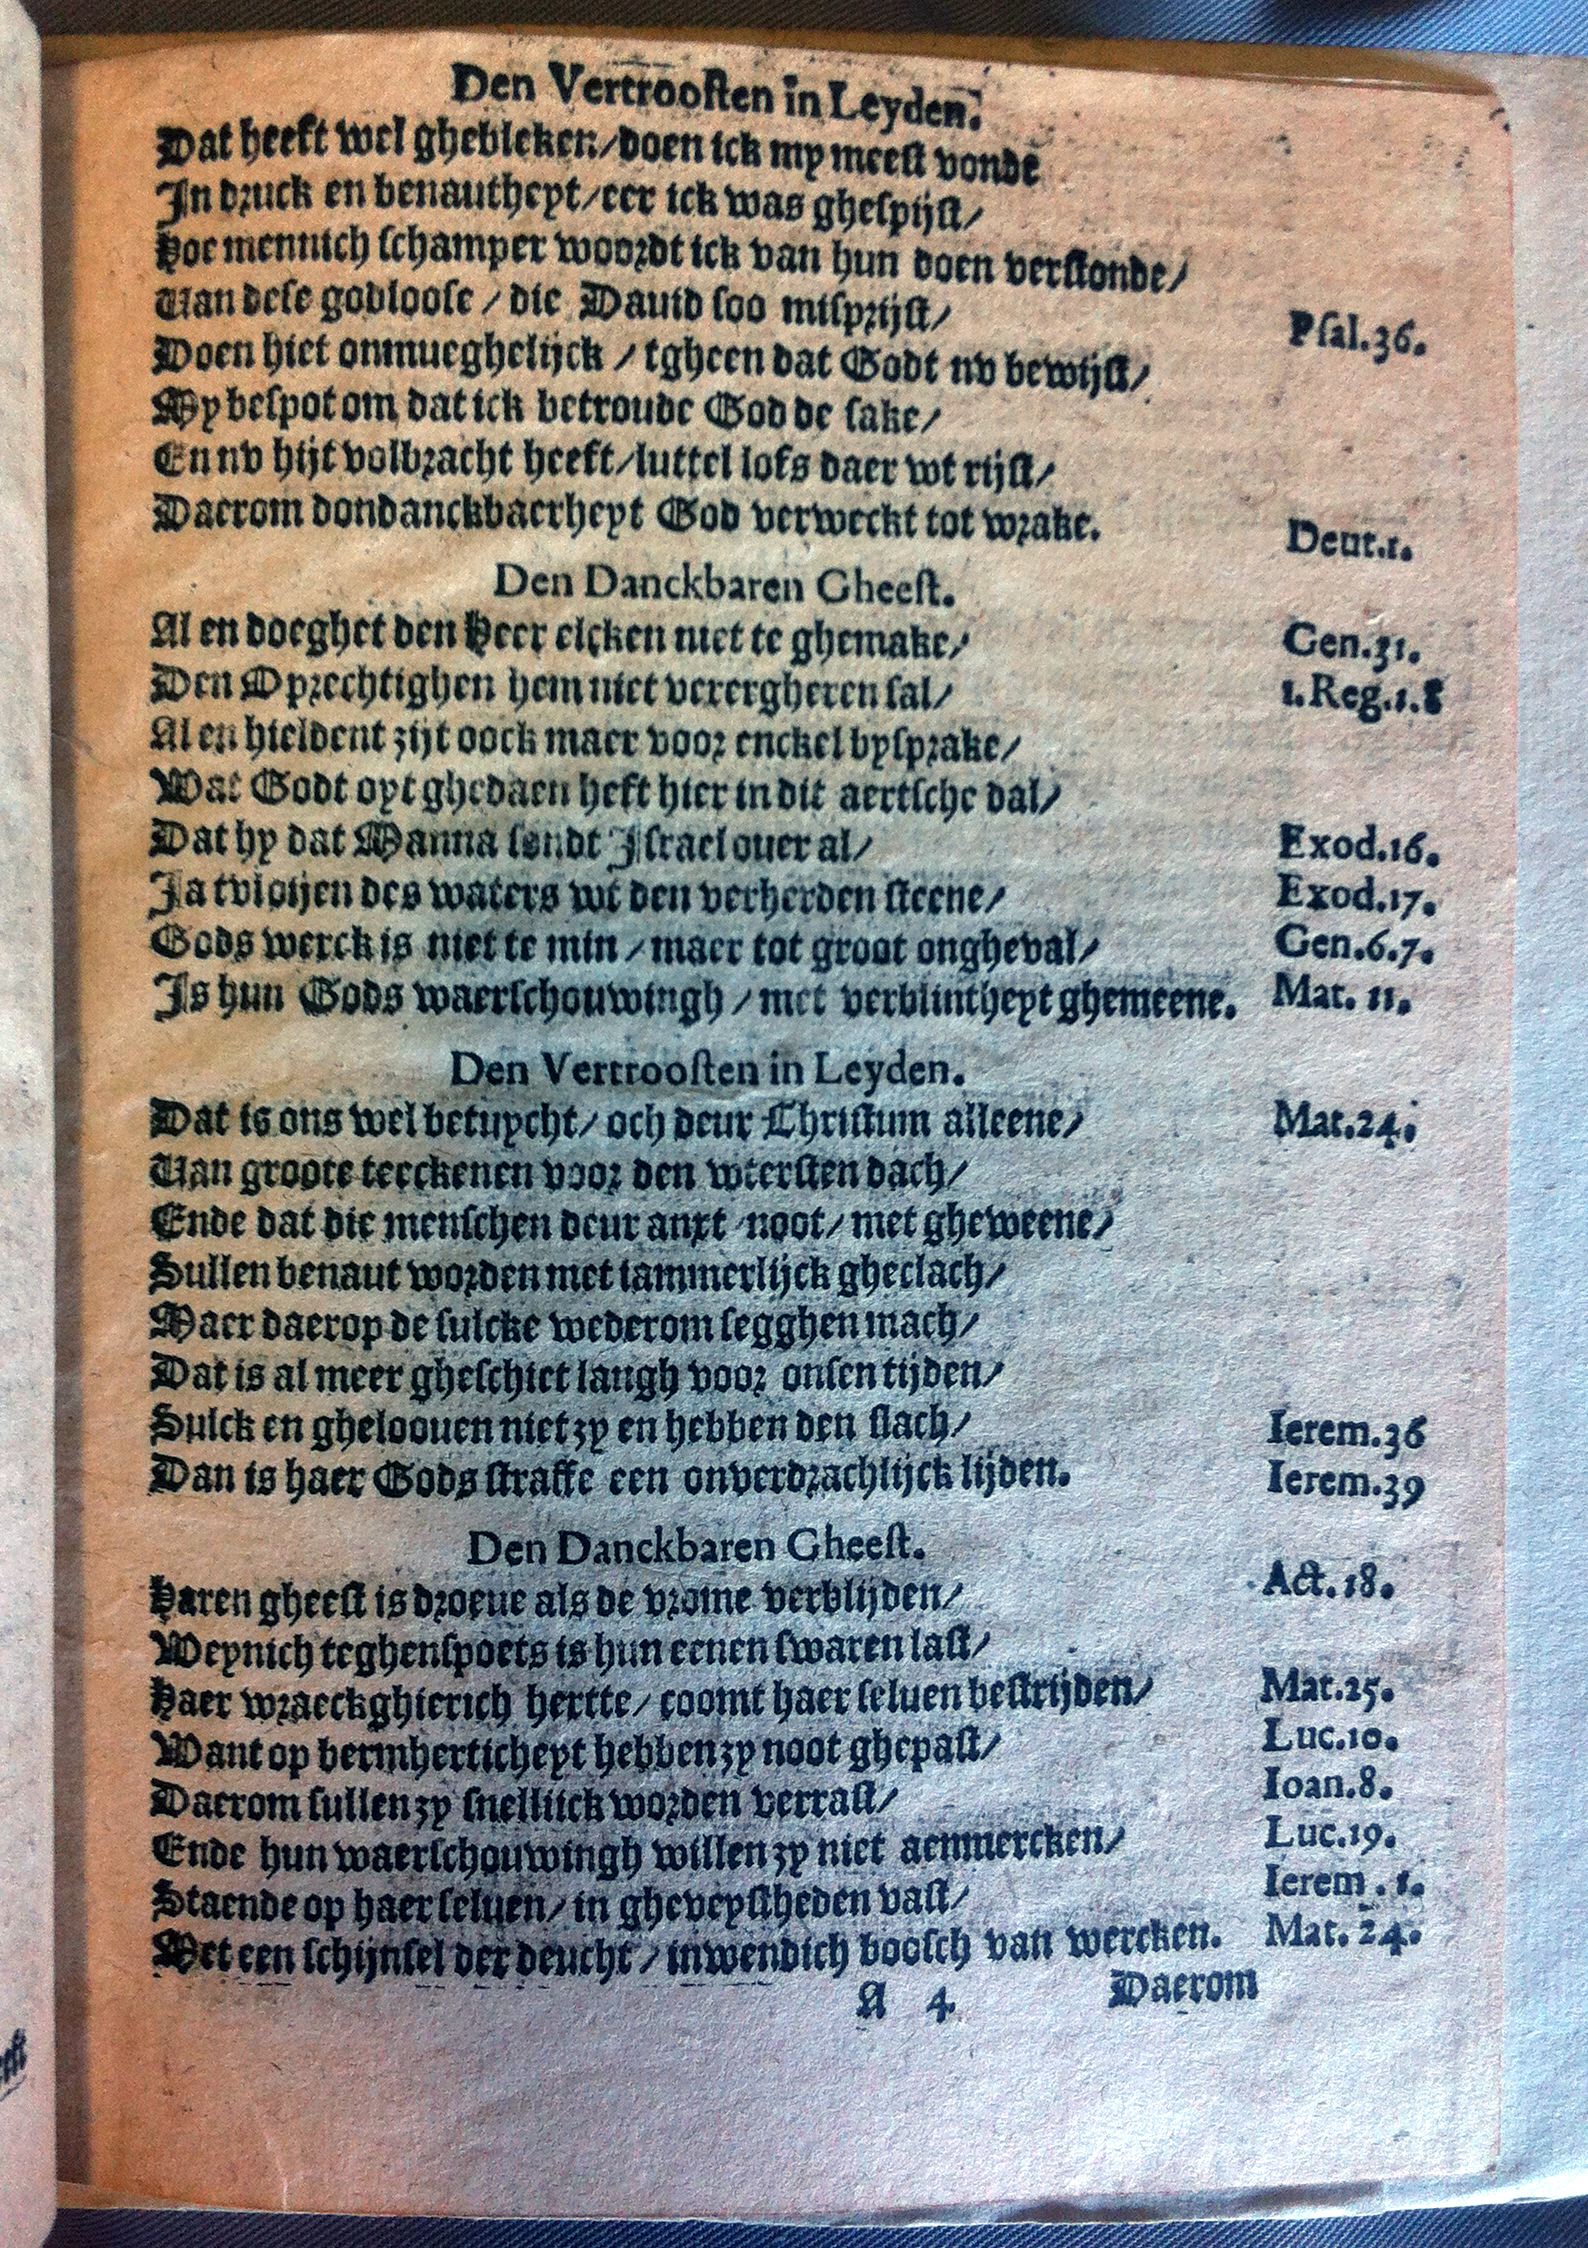 Den Vertrooſten in Leyden.
Dat heeft wel ghebleken/doen ick my meeſt vonde
In druck en benautheyt/eer ick was gheſpijſt/
Hoe mennich ſchamper woordt ick van hun doen verſtonde/
Van deſe godlooſe / die Dauid ſoo miſprijſt/ Pſal.36.
Doen hiet onmueghelijck / tgheen dat Godt nv bewijſt/
My beſpot om dat ick betroude God de ſake/
En nv hijt volbracht heeft/luttel lofs daer wt rijſt/
Daerom dondanckbaerheyt God verweckt tot wrake. Deut.1.
Den Danckbaren Gheeſt.
Al en doeghet den Heer elcken niet te ghemake/ Gen.31.
Den Oprechtighen hem niet verergheren ſal/ 1.Reg.1.8
Al en hieldent zijt oock maer voor enckel byſprake/
Wat Godt oyt ghedaen heft hier in dit aertſche dal/
Dat hy dat Manna ſondt Iſrael ouer al/ Exod.16.
Ja tvloijen des waters wt den verherden ſteene/ Exod.17.
Gods werck is niet te min / maer tot groot ongheval/ Gen.6.7.
Is hun Gods waerſchouwingh / met verblintheyt ghemeene. Mat. 11.
Den Vertrooſten in Leyden.
Dat is ons wel betuycht/ och deur Chriſtum alleene/ Mat.24.
Van groote teeckenen voor den wterſten dach/
Ende dat die menſchen deur anxt /noot/ met gheweene/
Sullen benaut worden met iammerlijck gheclach/
Maer daerop de ſulcke wederom ſegghen mach/
Dat is al meer gheſchiet langh voor onſen tijden/
Sulck en ghelooven niet zy en hebben den ſlach/ Ierem.36
Dan is haer Gods ſtraffe een onverdrachlijck lijden. Ierem.39
Den Danckbaren Gheeſt.
Haren gheeſt is droeue als de vrome verblijden/ Act.18.
Weynich teghenſpoets is hun eenen ſwaren laſt/
Haer wraeckghierich hertte/ coomt haer ſeluen beſtrijden/ Mat.25.
Want op bermherticheyt hebben zy noot ghepaſt/ Luc.10.
Daerom ſullen zy ſnellijck worden verraſt/ Ioan.8.
Ende hun waerſchouwingh willen zy niet aenmercken/ Luc.19.
Staende op haer ſeluen/ in gheveyſtheden vaſt/ Ierem . 1.
Met een ſchijnſel der deucht / inwendich booſch van wercken. Mat. 24.
A 4. Daerom